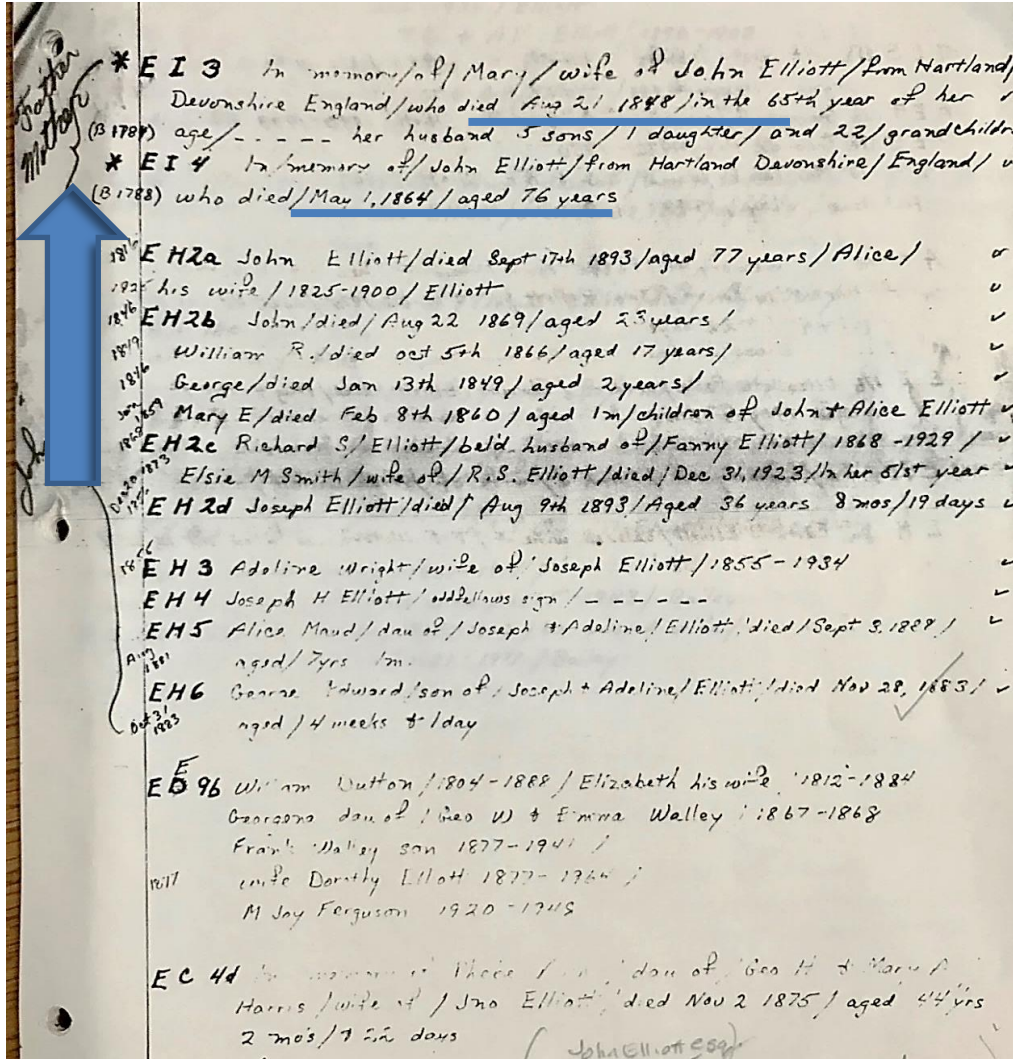 Father
Mother
* E I 3 In memory/of/Mary/wife of John Elliott/from Hartland/
Devonshire England/who died Aug 21 1848/in the 65th year of her
(B 1784) age/----- her husband 5 sons/1 daughter/and 22/grandchildr
* E I 4 In/memory of/John Elliott/from Hartland Devonshire/England/
(B 1788) who died/May 1, 1864/aged 76 years
1816 E H2a John Elliott/died Sept 17th 1893/aged 77 years/Alice/
1825 his wife/1825-1900/Elliott
1846 E H2b John/died/Aug 22 1869/aged 23 years/
1849 William R./died oct 5th 1866/aged 17 years/
1846 George/died Jan 13th 1849/aged 2 years/
Jan Mary E/died Feb 8th 1860/aged 1m/children of John + Alice Elliott
1868 E H2c Richard S/Elliott/bel'd husband of/Fanny Elliott/1868-1929/
Elsie M Smith/wife of/R.S. Elliott/died/Dec 31, 1923/In her 51st year
E H 2d Joseph Elliott/died/Aug 9th 1893/Aged 36 years 8 mos/19 days
1856
E H 3 Adeline Wright/wife of/Joseph Elliott/1855-1934
E H 4 Joseph H Elliott/oddfellows sign/------
E H 5 Alice Maud/dau of/Joseph + Adeline/Elliott/died/Sept 3, 1888/
Aug 1881 aged/7yrs 1m.
E H 6 George Edward/son of/Joseph + Adeline/Elliott/died Nov 28, 1883/
Oct 31 1883 aged/4 weeks + 1 day
E
E D 9b Dutton/1804-1888/Elizabeth his wife 1812-1884
dau of/Geo W + Emma Walley 1867-1868
Frank Walley son 1877-1941/
1877 wife Dorothy Elliott 1877-1964/
M Joy Ferguson 1920-1948
E C 4d dau of/Geo H + Mary A
Harris/wife of/Jno Elliott/died Nov 2 1875/aged 44 yrs
2 mo's/ days
(John Elliott Esq)